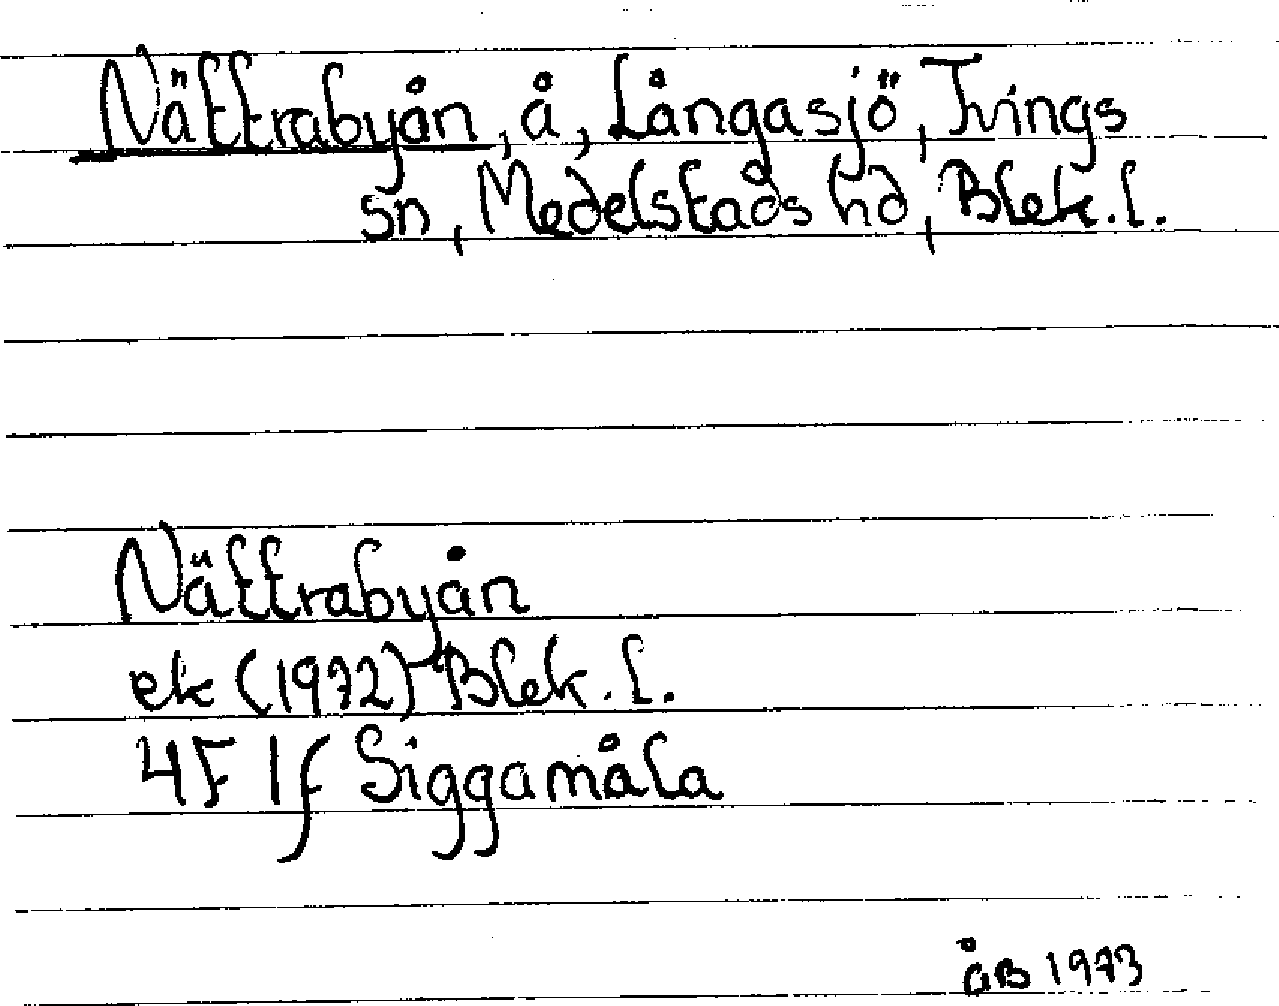 Nättrabyån, å, Långasjö, Tvings
sn, Medelstads hd, Blek. l.
Nättrabyån
ek (1972) Blek. l.
4F 1f Siggamåla
åB 1973